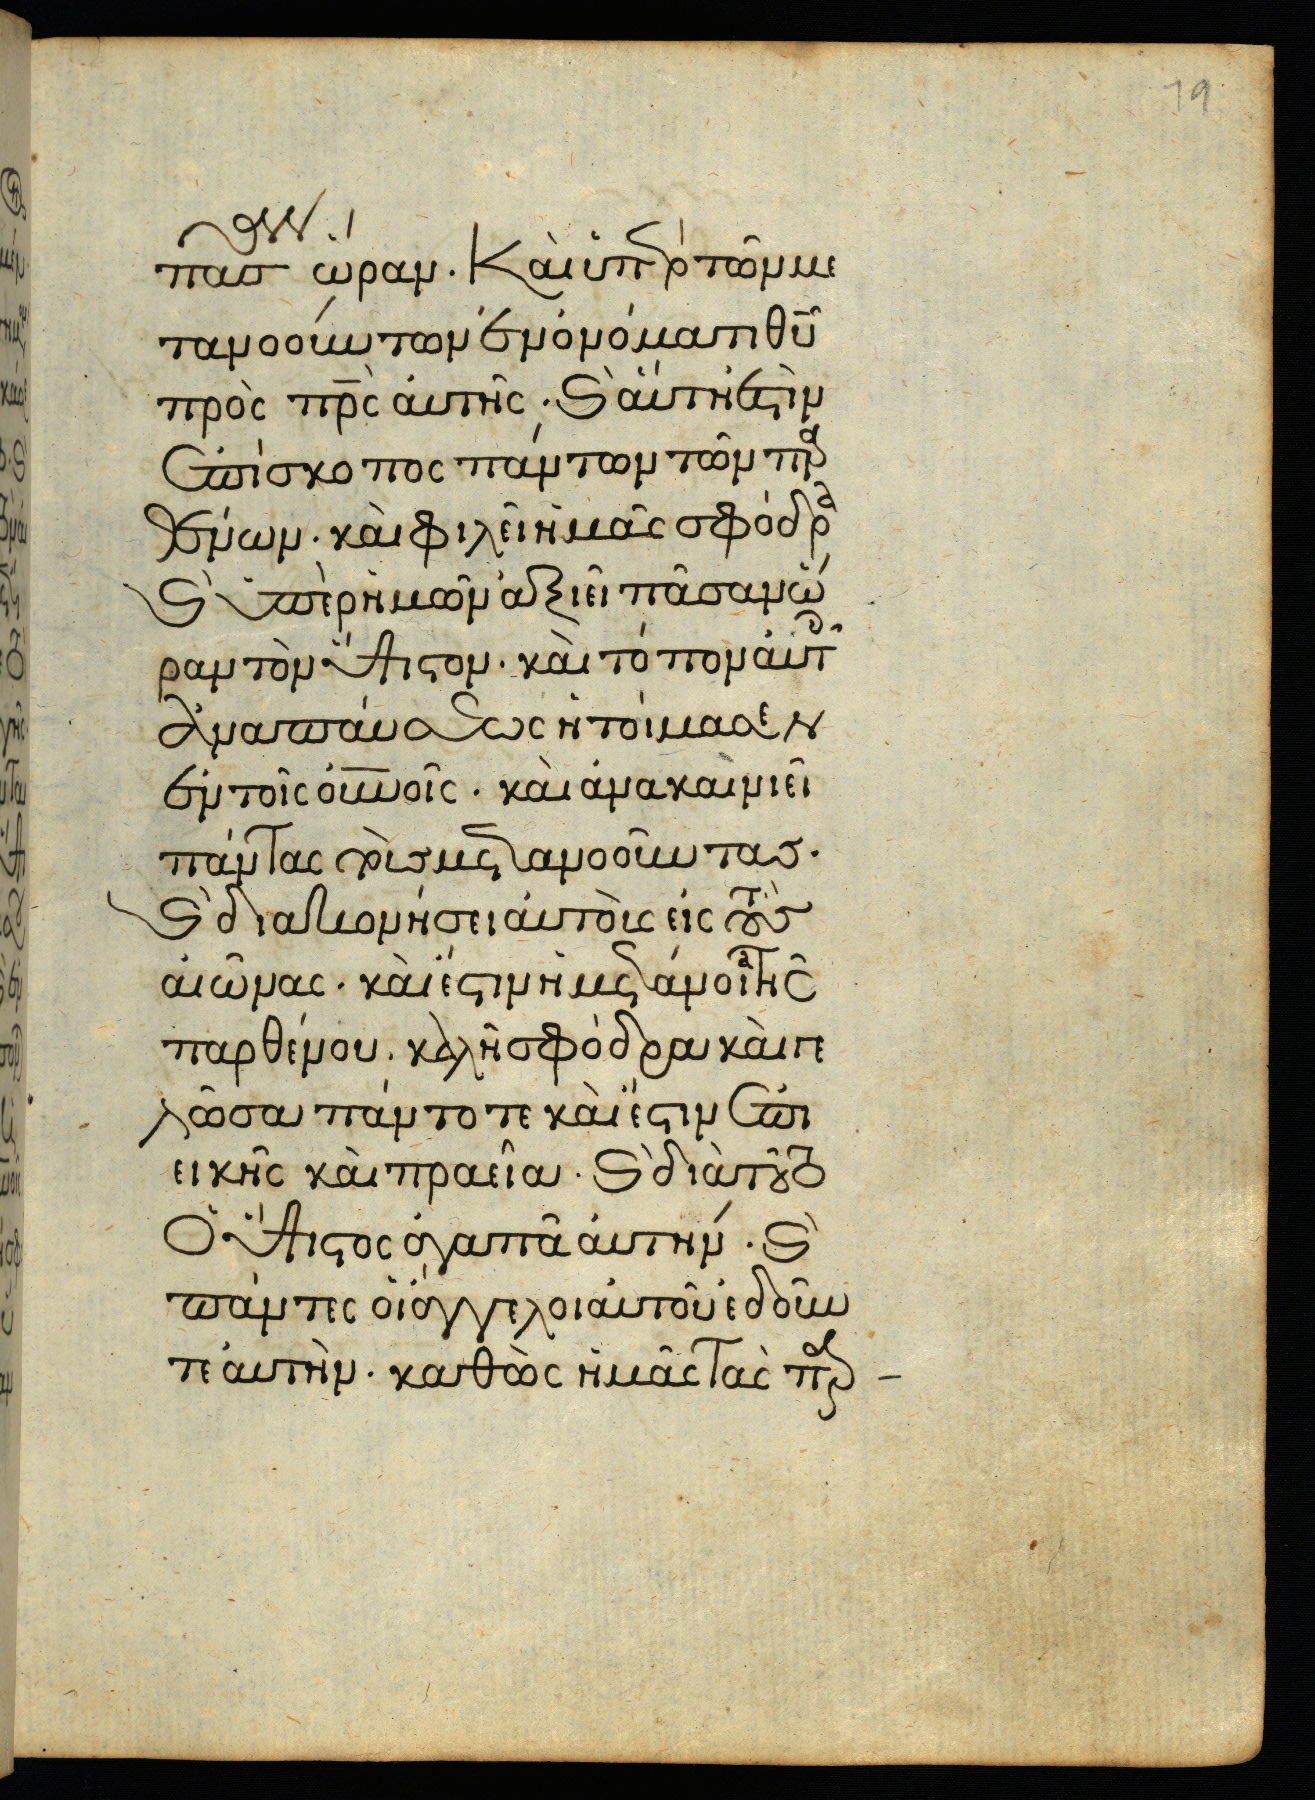 79
πᾶσαν ὥραν. Καὶ ὑπὲρ τῶν με
τανοούντων ἐν ὀνόματι θῡ
πρὸς πρ̅ς αὐτῆς. καὶ αὕτη ἐστὶν
ἐπίσκοπος πάντων τῶν παρ
θένων. καὶ φιλεῖ ἡμᾶς σφόδρα
καὶ ὑπὲρ ἡμῶν ἀξιεῖ πᾶσαν ὥ
ραν τὸν ὕψιστον. καὶ τόπον αὐτοῖς
ἀναπαύσεως ἡτοίμασεν
ἐν τοῖς οὐ̅νοῖς. καὶ ἀνακαινιεῖ
πάντας τοὺς μετανοοῦντας.
καὶ διακονήσει αὐτοὺς εἰς τοὺς
αἰῶνας. καὶ ἔστιν ἡ μετάνοια τῆς
παρθένου. καλὴ σφόδρα καὶ γε
λῶσα πάντοτε καὶ ἔστιν ἐπι
εικὴς καὶ πραεῖα. καὶ διὰ τοῦτο
ὁ ὕψιστος ἀγαπᾷ αὐτήν. καὶ
πάντες οἱ ἄγγελοι αὐτοῦ ἐδοῦν
τε αὐτὴν. καθὼς ἡμᾶς τὰς παρ –